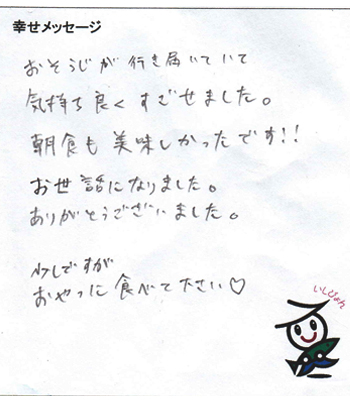 幸せメッセージ
おそうじが行き届いていて
気持ち良くすごせました。
朝食も美味しかったです!!
お世話になりました。
ありがとうございました。
少しですが
おやつに食べて下さい♡
いしぴょん